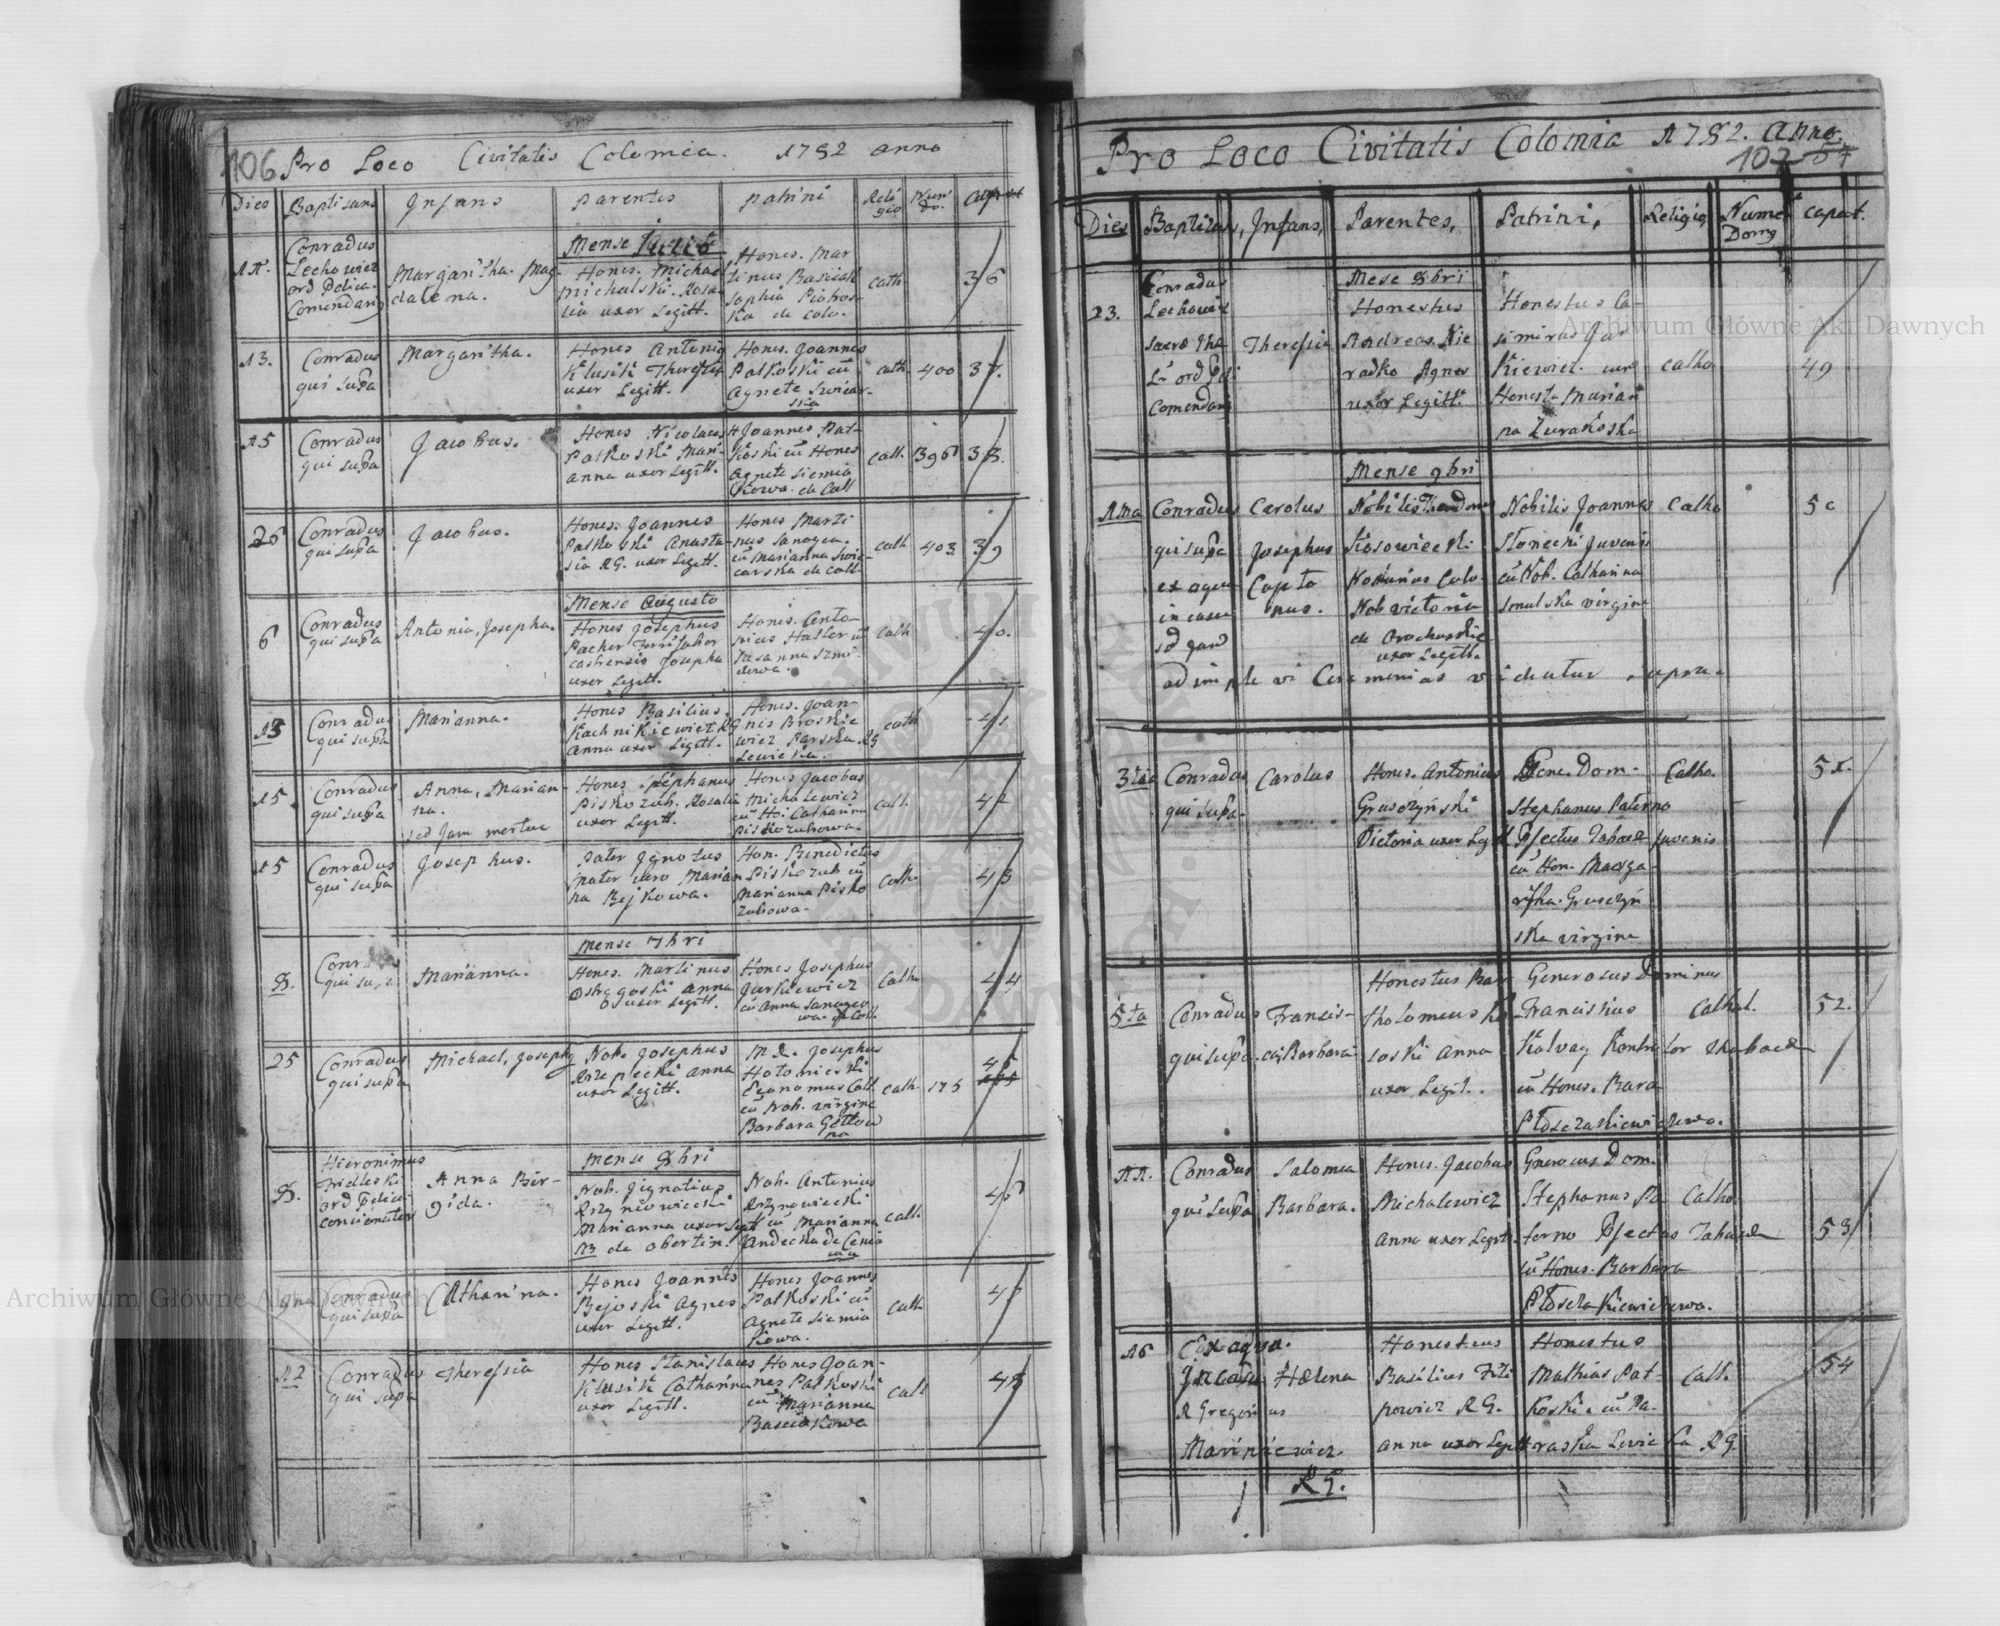 106 Pro Loco Civitatis Colomia. 1782 anno
Dies Baptisans Infans Parentes Patrini Religio Num. Do. Caput
Mense Julio
11. Conradus Lechowicz ord Pdica. Comendarg
Margaritha. Magdalena.
Hones. Michael
Michalski. Rosa-
lia uxor Legitt.
Hones. Mar
tinus Basciak
Sophia Piotros-
ka de Colo.
Cath 36
13. Conradus
qui supa
Margaritha.
Hones Antonig
Klusik Theressia
uxor Legitt.
Hones. Joannes
Patkoski cū
Agnete Swicar-
ska
cath 400 37.
15 Conradus
qui supa
Jacobus.
Hones Nicolaus
Patkoski Mari-
anna uxor Legitt.
H Joannes Pat-
koski cū Hones
Agnete Siemia
kowa. de Coll
cath. 396 38.
26 Conradus
qui supa
Jacobus.
Hones. Joannes
Patkoski Anasta-
sia RG. uxor Legitt.
Hones Marti
nus Sanogea.
cū Marianna Swi-
carska de Coll.
cath 403 39
Mense Augusto
6 Conradus
qui supa
Antonia, Josepha.
Hones Josephus
Pacher
castrensis Josepha
uxor Legitt.
Hones. Anto-
nius Haller
Susanna Szmi-
dowa.
Cath 40.
13 Conradu
qui supa
Marianna.
Hones Basilius.
Kachnikiewicz RG
Anna uxor Legitt.
Hones. Joan-
nis Broskie
wicz Parska. RG
Lewicka.
cath 41
15. Conradus
qui supa
Anna, Marian-
na.
sed jam mortua
Hones Stephanus
Piskozub. Rosalia
uxor Legitt.
Hones Jacobus
Michalewicz
cū Ho. Catharina
Piskozubowa.
Cath. 42
15 Conradus
qui supa
Josephus.
Pater Ignotus
mater vero Marian
na Bejkowa.
Hon. Benedictus
Piskozub cū
Marianna Pisko
zubowa.
Cath. 43
Mense 7bri
8. Conradus
qui supa
Marianna.
Hones. Martinus
Ostrogoski Anna
uxor Legitt.
Hones Josephus
Jurkiewicz
cū Anna Sanogeo
wa. de Coll.
Catho 44
25 Conradus
qui supa
Michael, Josephg
Nob. Josephus
Rzepecki Anna
uxor Legitt.
M. D. Josephus
Holoniewski
Economus Coll.
cū Nob. virgine
Barbara
cath. 175 45
Mense 8bri
8. Hieronimus
Zielleski
ord Pdica.
concionator
Anna Bir-
gida.
Nob. Jignatius
Rozniowiecki
Marianna uxor Legitt
de Obertin.
Nob. Antonius
Roznowiecki
cū Marianna
cath. 46
9na Conradus
qui supa
Catharina.
Hones Joannes
Bejoski Agnes
uxor Legitt.
Hones Joannes
Patkoski cū
Agnete Siemia
kowa.
Cath 47
12 Conradus
qui supa
Theressia
Hones Stanislaus
Klusik Catharina
uxor Legitt.
Hones Joan-
nes Patkoski
cū Marianna
Basciakowa
Cath 48
Pro Loco Civitatis Colomia 1782. Anno.
107 54
Dies Baptizas, Infans, Parentes, Patrini, Religio, Nume Domg caput.
Mese 8bri
23. Conradus
Lechowicz
sacræ The
Lr ord Pdi
Comendarj
Theressia
Honestus
Andreas Nie
radko Agnes
uxor Legitt.
Honestus Ca-
simirus Jur
kiewicz. cum
Honesta Marian
na Zurakoska
catho 49
Mense 9bri
1ma Conradus
qui supa
ex aqua
in casu
sd jam
Carolus
Josephus
Capto
nus.
Nobilis Theodorus
Kosowiecki
Notarius Colo.
Nob Victoria
uxor Legitt.
Nobilis Joannes
Slonecki Juvenis
cū Nob. Catharina
virgine
Catho 50
adimple vi Ceremonias videatur supra.
3tia Conradus
qui supa.
Carolus
Hones. Antonius
Gruszyński
Victoria uxor Legitt
Gene. Dom.
Stephanus Paterno
Pfectus Tabacæ Juvenis
cū Hon. Marga
ritha. Gruszyń
ska virgine
Catho. 51.
5ta Conradus
qui supa.
Francis-
ca, Barbara
Honestus Bar
tholomeus Ko
soski Anna
uxor Legit.
Generosus Dominus
Franciskus
Kalvay Kontrolor thabacæ
cū Hones. Bara
Ploszczakiewiczowa.
Cathol. 52.
11. Conradus
qui supa
Salomea
Barbara.
Hones. Jacobus
Michalewicz
Anna uxor Legitt.
Generosus Dom.
Stephanus Pa
terno Pfectus Tabacæ
cū Hones. Barbara
Ploszczakiewiczowa.
Catho. 53
16 Ex aqua.
In casu
R Gregorius
Mariniewicz.
RG.
Hælena
Honestus
Basilius Fili
powicz RG.
Anna uxor Legitt
Honestus
Mathias Pat-
koski cū Pa-
raska Levicka RG.
Cath. 54
Archiwum Główne Akt Dawnych
Archiwum Główne Akt Dawnych